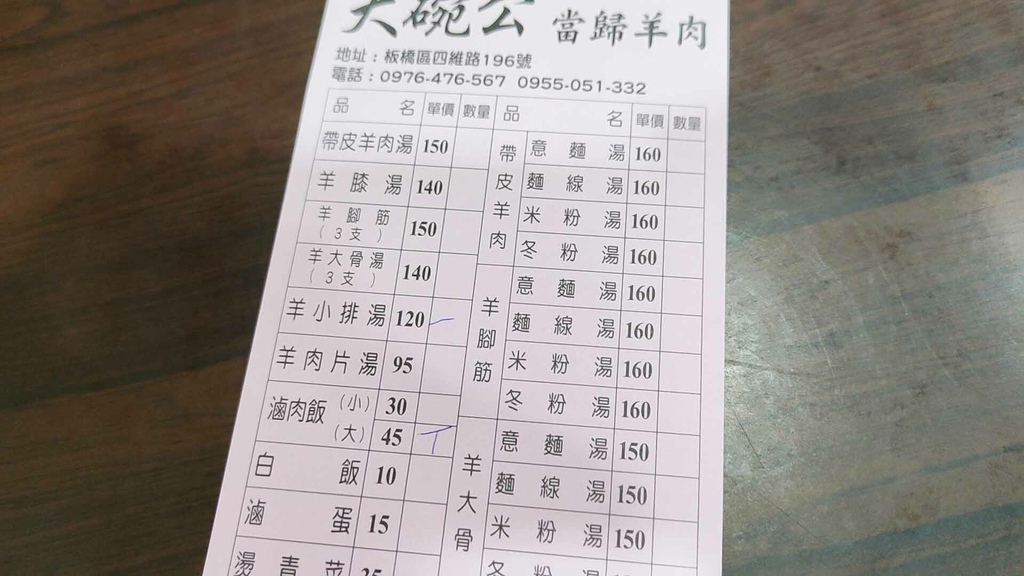 大碗公 當歸羊肉
地址：板橋區四維路196號
電話：0976-476-567 0955-051-332
品名 單價 數量 品名 單價 數量
帶皮羊肉湯 150
羊膝湯 140
羊腳筋（3支） 150
羊大骨湯（3支） 140
羊小排湯 120
羊肉片湯 95
滷肉飯（小） 30
（大） 45
白飯 10
滷蛋 15
燙青菜
帶皮羊肉
意麵湯 160
麵線湯 160
米粉湯 160
冬粉湯 160
羊腳筋
意麵湯 160
麵線湯 160
米粉湯 160
冬粉湯 160
羊大骨
意麵湯 150
麵線湯 150
米粉湯 150
冬粉湯